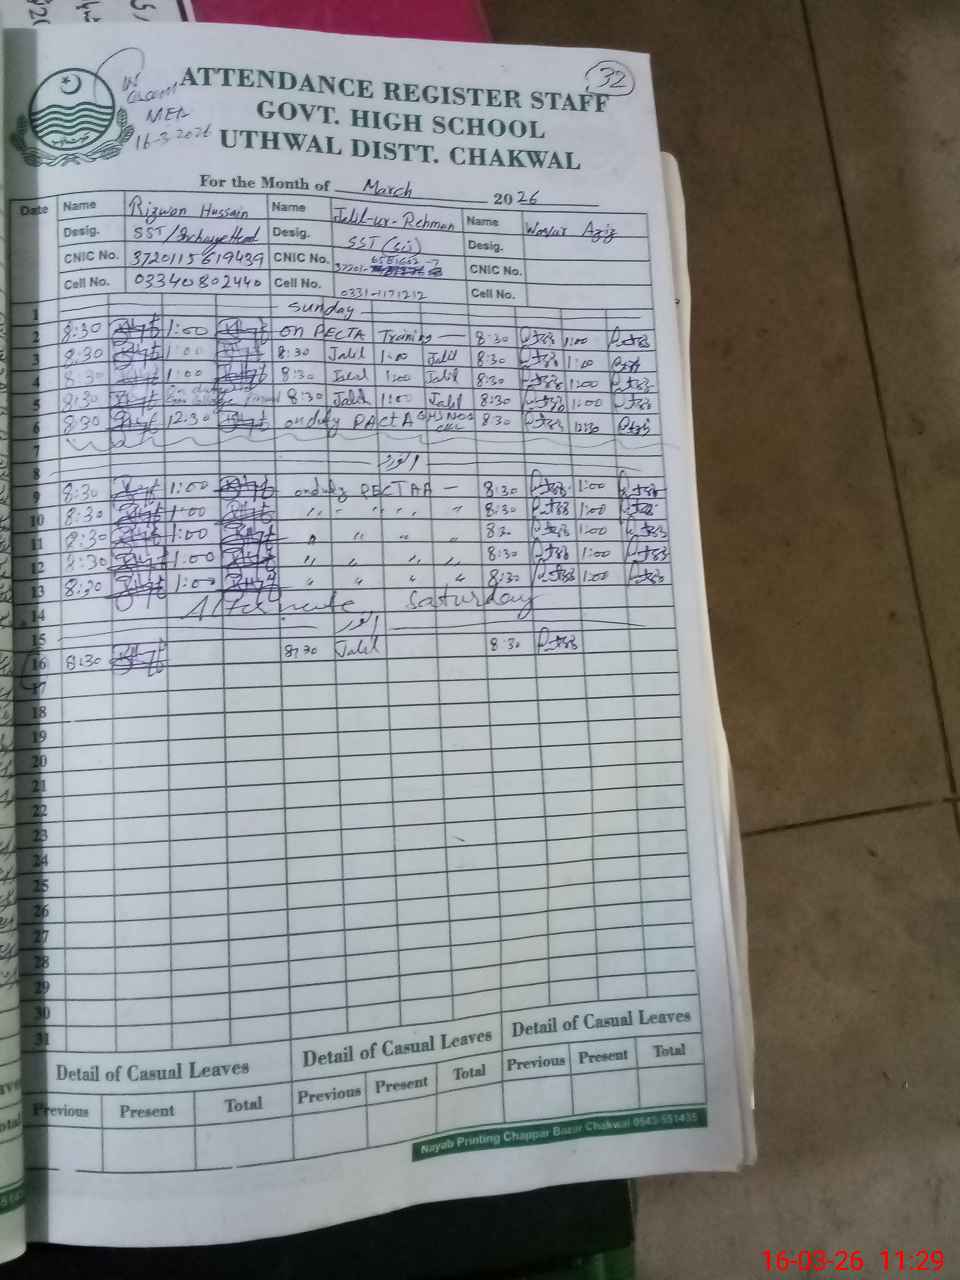 32
ATTENDANCE REGISTER STAFF
GOVT. HIGH SCHOOL
UTHWAL DISTT. CHAKWAL
16-3-2026
For the Month of March 2026
Date Name Rizwan Hussain Name Jalil-ur-Rehman Name Waqar Aziz
Desig. SST/Incharge Head Desig. SST (Sci) Desig.
CNIC No. 3720115619439 CNIC No. 37201- CNIC No.
Cell No. 03340802440 Cell No. 0331-1171212 Cell No.
1 Sunday
2 8:30 1:00 on PECTA Training 8:30 1:00
3 8:30 1:00 8:30 Jalil 1:00 Jalil 8:30 1:00
4 8:30 1:00 8:30 Jalil 1:00 Jalil 8:30 1:00
5 8:30 on duty 8:30 Jalil 1:00 Jalil 8:30 1:00
6 8:30 12:30 on duty PACTA GHS NO 1 8:30 12:30
7
8 اتوار
9 8:30 1:00 on duty PECTAA — 8:30 1:00
10 8:30 1:00 ,, ,, ,, ,, 8:30 1:00
11 8:30 1:00 ,, ,, ,, ,, 8:30 1:00
12 8:30 1:00 ,, ,, ,, ,, 8:30 1:00
13 8:30 1:00 ,, ,, ,, ,, 8:30 1:00
14 Alternate Saturday
15 اتوار
16 8:30 8:30 Jalil 8:30
17
18
19
20
21
22
23
24
25
26
27
28
29
30
31
Detail of Casual Leaves Detail of Casual Leaves Detail of Casual Leaves
Previous Present Total Previous Present Total Previous Present Total
Nayab Printing Chappar Bazar Chakwal 0543-551435
16-03-26 11:29